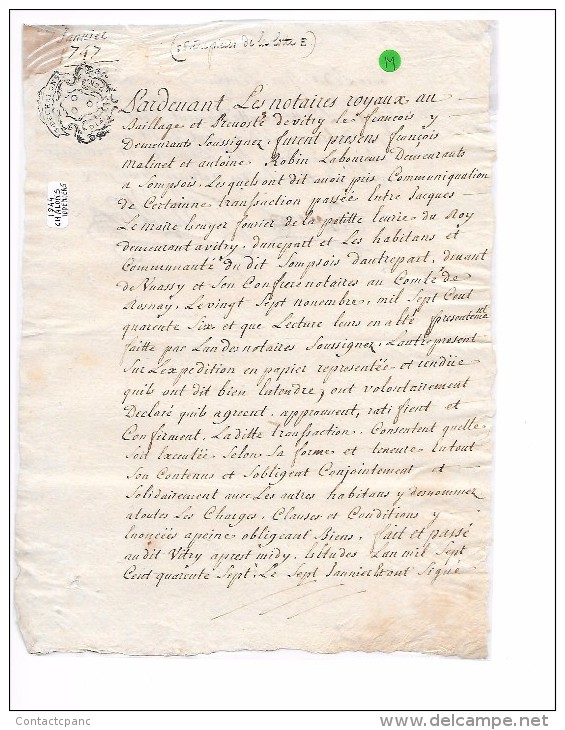 Janvier
1747
de la cotte E)
M
1744
CHALONS
Pardevant Les notaires royaux au
Baillage et Prevosté de vitry le françois y
Demeurants Soussignez, furent presens françois
Malinet et antoine Robin Laboureurs Demeurants
a Sompsois, Lesquels ont dit avoir pris Communiquation
de Certainne transaction passée Entre Jacques
Lemoire Ecuyer fourier de la petitte Eurie du Roy
demeurant a vitry, dunepart et Les habitans et
Communauté du dit Sompsois dautrepart, devant
de Vuassy et Son Confrere notaires au Comté de
Rosnay, Levingt Sept novembre, mil Sept Cent
quarente Six et que Lecture leurs en a Eté presentement
faitte par Lun des notaires Soussignez, Lautre present
Sur Lexpedition en papier representée et rendüe
quils ont dit bien Entendre, ont volostairement
Declaré quils agreent, approuvent, ratifient et
Confirment, Laditte transaction, Consentent quelle
Soit Executée Selon Sa forme et teneure Entout
Son Contenus et Sobligent Conjointement et
Solidairement avec Les autres habitans y desnommez
atoutes Les Charges, Clauses et Conditions y
Enoncées apeine obligeant Biens, fait et passé
audit Vitry aprest midy, Esetudes Lan mil Sept
Cent quarente Sept, Le Sept Janvier Et ont Signé
Contactcpanc
www.delcampe.net